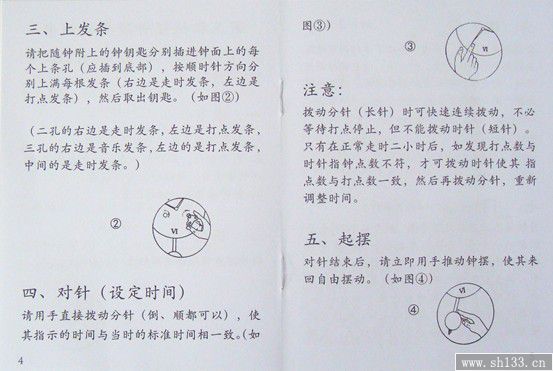 三、上发条
请把随钟附上的钟钥匙分别插进钟面上的每
个上条孔（应插到底部），按顺时针方向分
别上满每根发条（右边是走时发条，左边是
打点发条），然后取出钥匙。（如图②）
（二孔的右边是走时发条，左边是打点发条，
三孔的右边是音乐发条，左边的是打点发条，
中间的是走时发条。）
②
VI
四、对针（设定时间）
请用手直接拨动分针（倒、顺都可以），使
其指示的时间与当时的标准时间相一致。（如
4
图③）
③
VI
注意：
拨动分针（长针）时可快速连续拨动，不必
等待打点停止，但不能拨动时针（短针）。
只有在正常走时二小时后，如发现打点数与
时针指钟点数不符，才可拨动时针使其 指
点数与打点数一致，然后再拨动分针，重新
调整时间。
五、起摆
对针结束后，请立即用手推动钟摆，使其来
回自由摆动。（如图④）
④
VI
www.sh133.cn